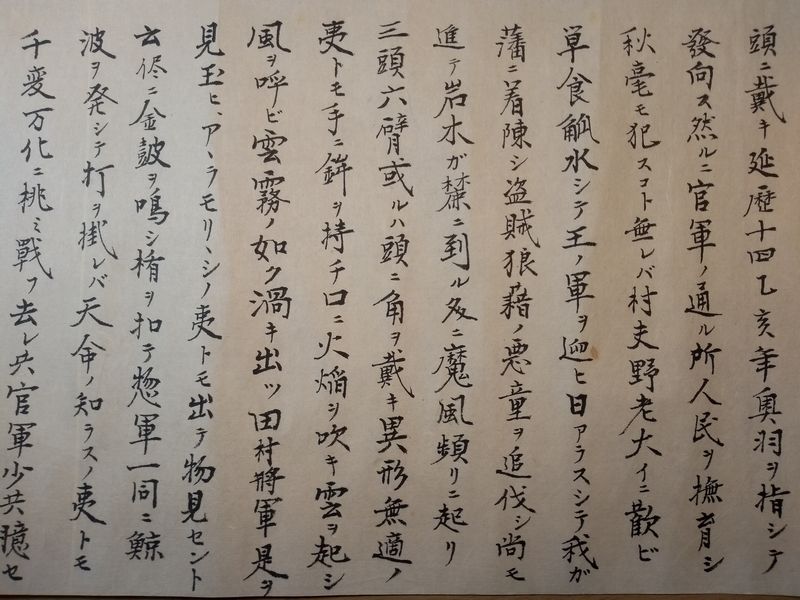 頭ニ戴キ延歴十四乙亥年奥羽ヲ指シテ
發向ス然ルニ官軍ノ通ル所人民ヲ撫育シ
秋毫モ犯スコト無レバ村夫野老大イニ歡ビ
単食觚水シテ王ノ軍ヲ迎ヒ日アラスシテ我ガ
藩ニ着陳シ盗賊狼藉ノ悪童ヲ追伐シ尚モ
進テ岩木ガ麓ニ到ル多ニ魔風頻リニ起リ
三頭六臂或ルハ頭ニ角ヲ戴キ異形無適ノ
夷トモ手ニ鉾ヲ持チ口ニ火焔ヲ吹キ雲ヲ起シ
風ヲ呼ビ雲霧ノ如ク渦キ出ツ田村將軍是ヲ
見玉ヒ、アヽラモリヽシノ夷トモ出テ物見セント
云侭ニ金鼓ヲ鳴シ楯ヲ扣テ惣軍一同ニ鯨
波ヲ発シテ打ヲ掛レバ天命ノ知ラスノ夷トモ
千変万化ニ挑ミ戰フ去レ共官軍少共臆セ